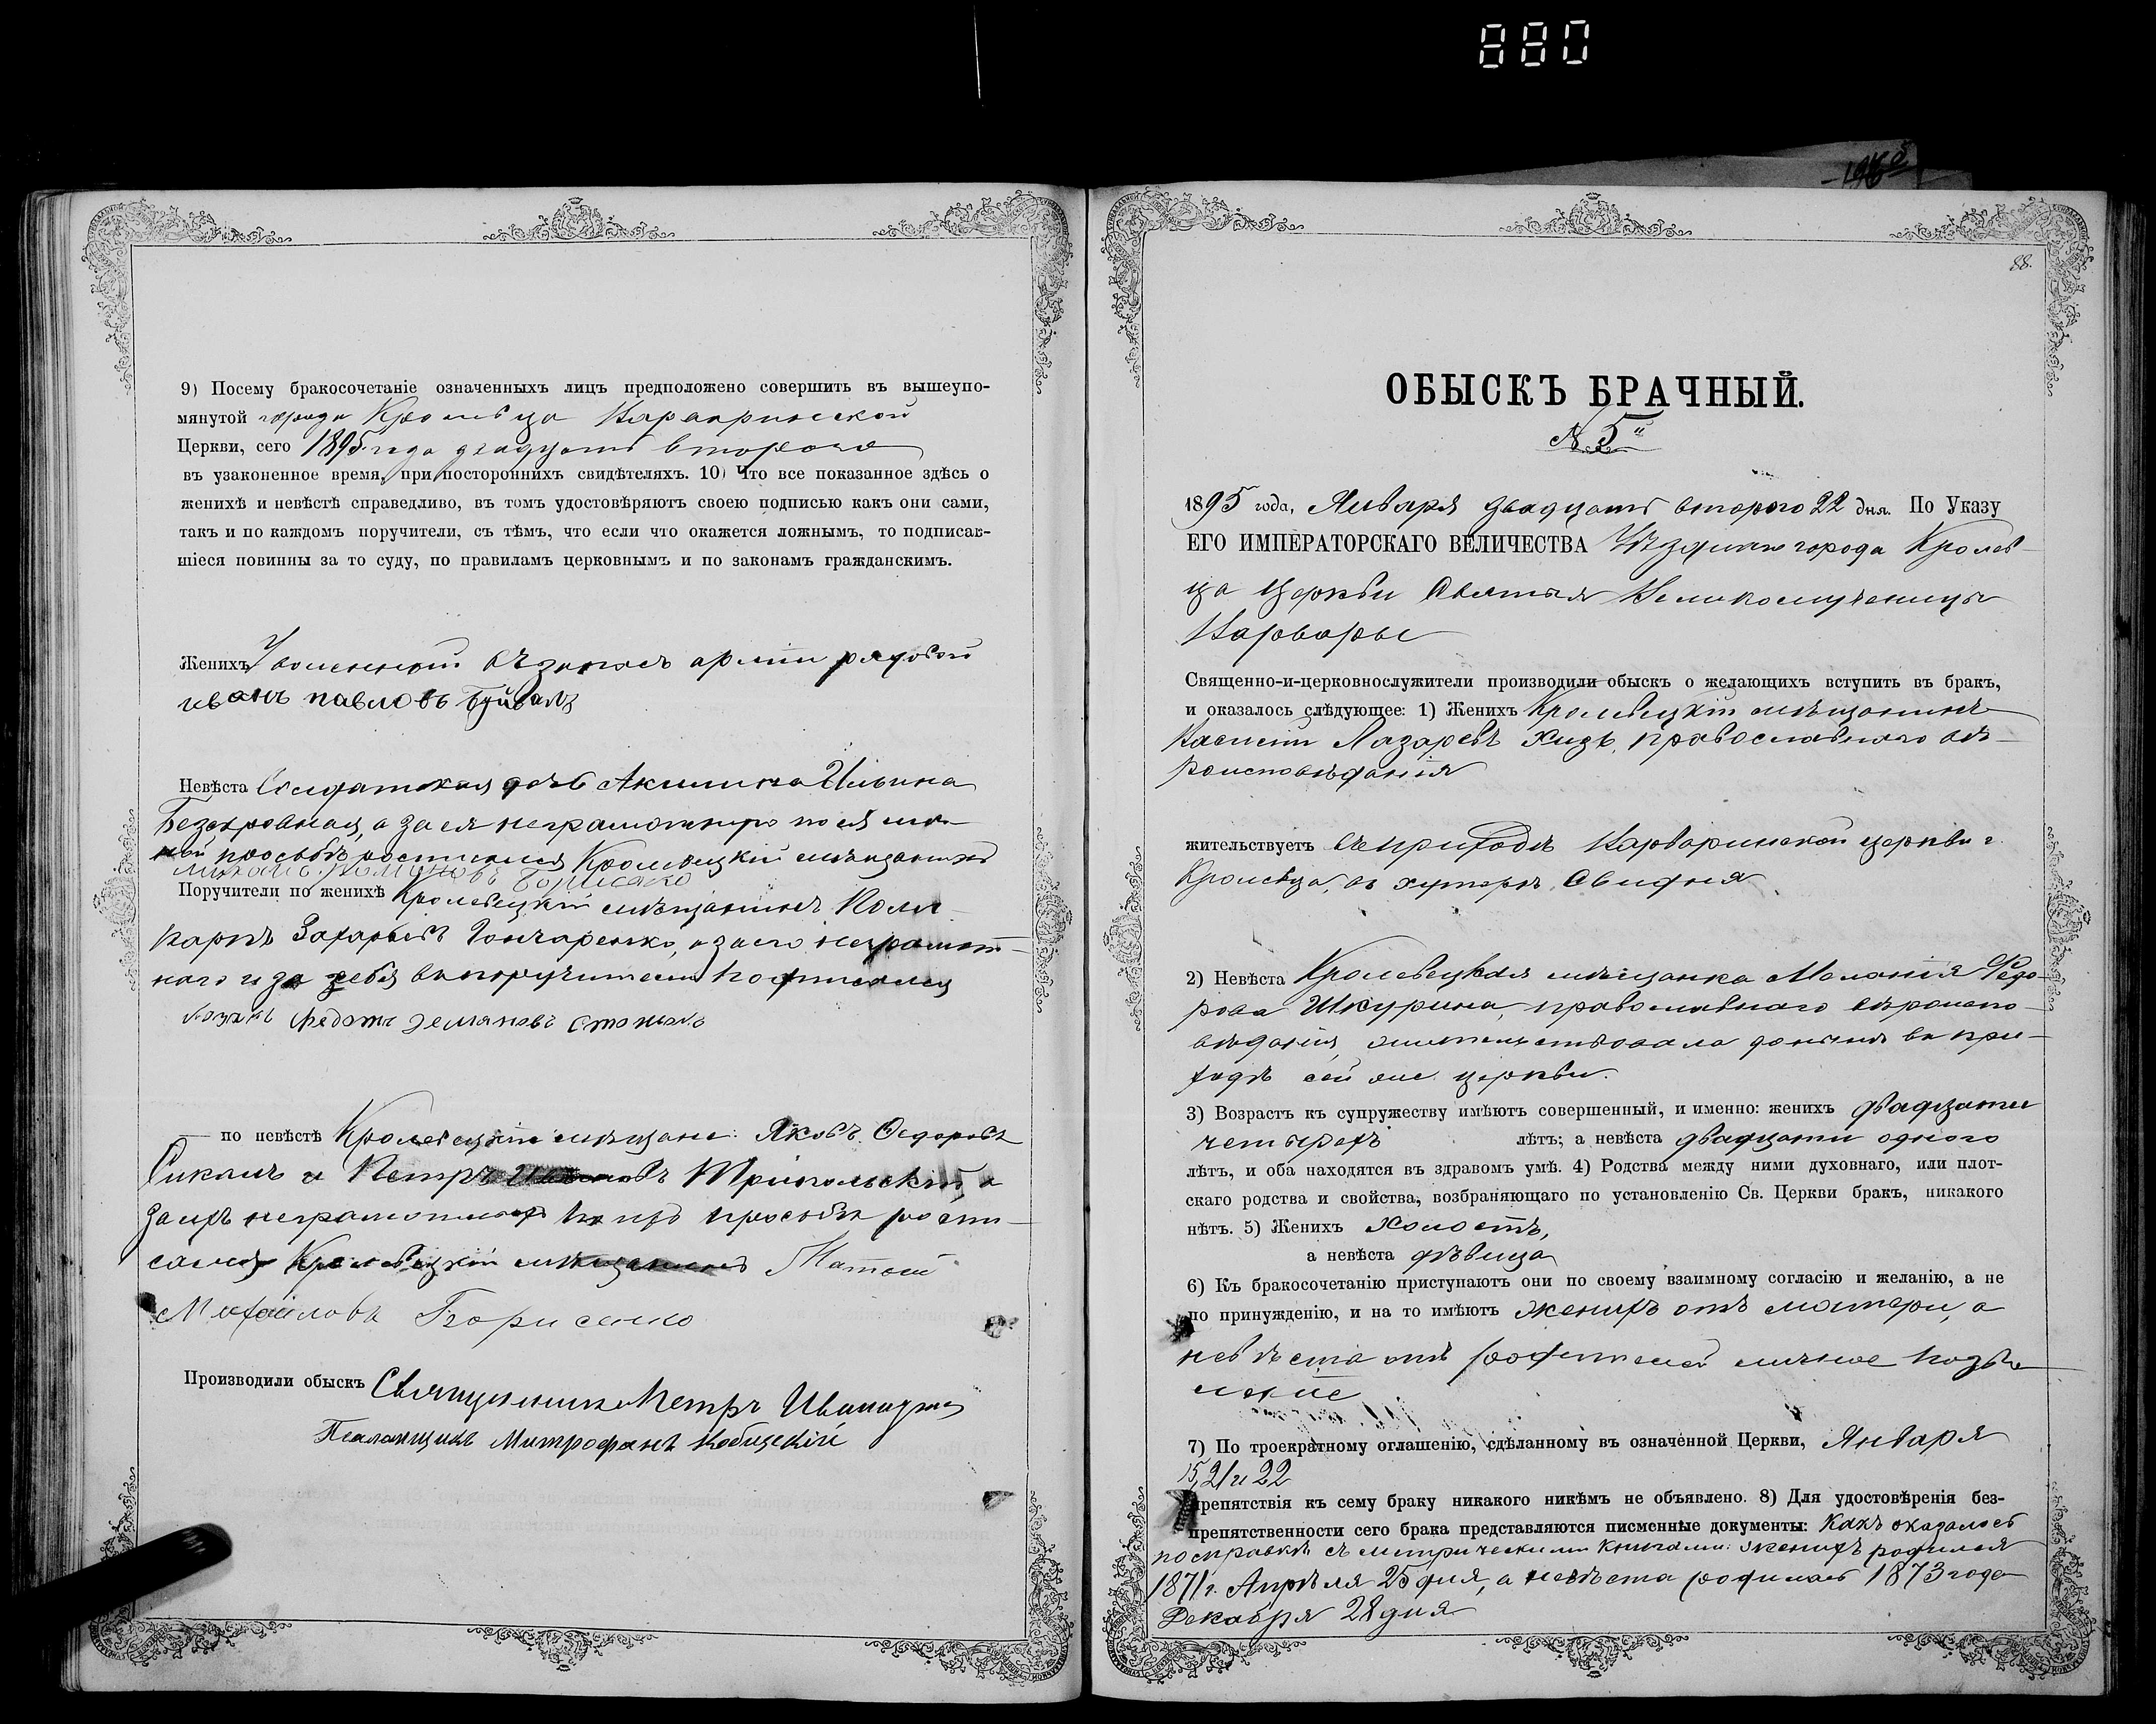 880
9) Посему бракосочетаніе означенныхъ лицъ предположено совершить въ вышеупо-
мянутой города Кролевца Варваринской
Церкви, сего 1895 года двадцать второго
въ узаконенное время, при постороннихъ свидѣтеляхъ. 10) Что все показанное здѣсь о
женихѣ и невѣстѣ справедливо, въ томъ удостовѣряютъ своею подписью какъ они сами,
такъ и по каждомъ поручители, съ тѣмъ, что если что окажется ложнымъ, то подписав-
шіеся повинны за то суду, по правиламъ церковнымъ и по законамъ гражданскимъ.
Женихъ Уволенный въ запасъ арміи рядовой
иванъ павловъ
Невѣста Солдатская дочь Акилина Ильина
Безкровная, а за ея неграмотную по ея лич-
ной просьбѣ росписался Кролевецкій мѣщанинъ
Борисенко
Поручители по женихѣ Кролевецкій мѣщанинъ Поли-
карпъ Захарьевъ Гончаренко, а за его неграмот-
наго и за себя въ поручители подписался
козакъ Федотъ Демяновъ
по невѣстѣ Кролевецкіе мѣщане: Яковъ Федоровъ
Сикачъ и Петръ Трипольскій, а
за ихъ неграмотныхъ по ихъ просьбѣ роспи-
сался Кролевецкій мѣщанинъ Матвей
Михайловъ Борисенко
Производили обыскъ Священникъ Петръ
Псаломщикъ Митрофанъ Кобищскій
88.
ОБЫСКЪ БРАЧНЫЙ.
№ 5й
1895 года, Января двадцать второго 22 дня. По Указу
ЕГО ИМПЕРАТОРСКАГО ВЕЛИЧЕСТВА Уѣзднаго города Кролев-
ца Церкви Святыя Великомученицы
Варвары
Священно-и-церковнослужители производили обыскъ о желающихъ вступить въ бракъ,
и оказалось слѣдующее: 1) Женихъ Кролевецкій мѣщанинъ
Лазаревъ православнаго вѣ-
роисповѣданія
жительствуетъ въ приходѣ Варваринской церкви г.
Кролевца, въ хуторѣ Свидня
2) Невѣста Кролевецкая мѣщанка Меланія Федо-
рова Шкурина, православнаго вѣроиспо-
вѣданія, жительствовала донынѣ въ при-
ходѣ сей же церкви.
3) Возрастъ къ супружеству имѣютъ совершенный, и именно: женихъ двадцати
четырехъ лѣтъ; а невѣста двадцати одного
лѣтъ, и оба находятся въ здравомъ умѣ. 4) Родства между ними духовнаго, или плот-
скаго родства и свойства, возбраняющаго по установленію Св. Церкви бракъ, никакого
нѣтъ. 5) Женихъ холостъ,
а невѣста дѣвица
6) Къ бракосочетанію приступаютъ они по своему взаимному согласію и желанію, а не
по принужденію, и на то имѣютъ женихъ отъ матери, а
невѣста отъ родителей личное позво-
леніе
7) По троекратному оглашенію, сдѣланному въ означенной Церкви, Января
15, 21 и 22
препятствія къ сему браку никакого никѣмъ не объявлено. 8) Для удостовѣренія без-
препятственности сего брака представляются писменные документы: Какъ оказалось
по справкѣ съ метрическими книгами: женихъ родился
1871 г. Апрѣля 25 дня, а невѣста родилась 1873 года
Декабря 28 дня